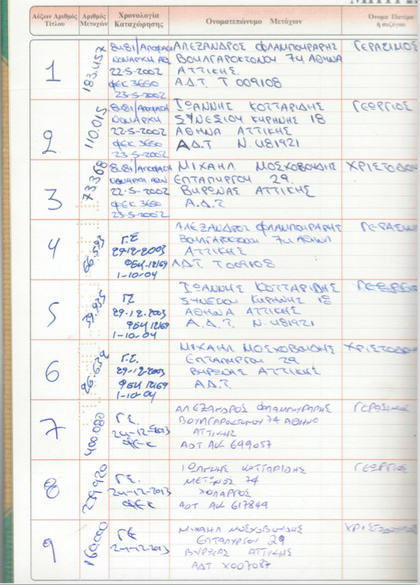 Αύξων Αριθμός Τίτλου
Αριθμός Μετοχών
Χρονολογία Καταχώρησης
Ονοματεπώνυμο Μετόχων
Όνομα Πατέρα ή συζύγου
1
183.457
22-5-2002
ΦΕΚ 3660
23-5-2002
ΑΛΕΞΑΝΔΡΟΣ ΦΛΑΜΠΟΥΡΑΡΗΣ
ΒΟΥΛΓΑΡΟΚΤΟΝΟΥ 74 ΑΘΗΝΑ
ΑΤΤΙΚΗΣ
Α.Δ.Τ. Τ 009108
ΓΕΡΑΣΙΜΟΣ
2
110.015
22-5-2002
ΦΕΚ 3660
23-5-2002
ΙΩΑΝΝΗΣ ΚΟΤΤΑΡΙΔΗΣ
ΣΥΝΕΣΙΟΥ ΚΥΡΗΝΗΣ 18
ΑΘΗΝΑ ΑΤΤΙΚΗΣ
Α.Δ.Τ Ν 481921
ΓΕΩΡΓΙΟΣ
3
73.368
22-5-2002
ΦΕΚ 3660
23-5-2002
ΜΙΧΑΗΛ ΜΟΣΧΟΒΟΥΔΗΣ
ΕΠΤΑΠΥΡΓΟΥ 29
ΒΥΡΩΝΑΣ ΑΤΤΙΚΗΣ
Α.Δ.Τ
ΧΡΙΣΤΟΔΟΥ
4
Γ.Σ.
29-12-2003
ΦΕΚ 12169
1-10-04
ΑΛΕΞΑΝΔΡΟΣ ΦΛΑΜΠΟΥΡΑΡΗΣ
ΒΟΥΛΓΑΡΟΚΤΟΝΟΥ 74 ΑΘΗΝΑ
ΑΤΤΙΚΗΣ
ΑΔΤ. Τ009108
ΓΕΡΑΣΙΜ
5
29-12-2003
ΦΕΚ 12169
1-10-04
ΙΩΑΝΝΗΣ ΚΟΤΤΑΡΙΔΗΣ
ΣΥΝΕΣΙΟΥ ΚΥΡΗΝΗΣ 18
ΑΘΗΝΑ ΑΤΤΙΚΗΣ
Α.Δ.Τ. Ν. 481921
ΓΕΩΡΓΙΟΣ
6
Γ.Σ.
29-12-2003
ΦΕΚ 12169
1-10-04
ΜΙΧΑΗΛ ΜΟΣΧΟΒΟΥΔΗΣ
ΕΠΤΑΠΥΡΓΟΥ 29
ΒΥΡΩΝΑΣ ΑΤΤΙΚΗΣ
Α.Δ.Τ.
ΧΡΙΣΤΟΔΟΥ
7
400.080
Γ.Σ.
24-12-2013
ΑΛΕΞΑΝΔΡΟΣ ΦΛΑΜΠΟΥΡΑΡΗΣ
ΒΟΥΛΓΑΡΟΚΤΟΝΟΥ 74 ΑΘΗΝΑ
ΑΤΤΙΚΗΣ
ΑΔΤ ΑΚ 699057
ΓΕΡΑΣΙΜΟΣ
8
239.920
Γ.Σ.
24-12-2013
ΙΩΑΝΝΗΣ ΚΟΤΤΑΡΙΔΗΣ
74
ΧΟΛΑΡΓΟΣ
ΑΔΤ ΑΚ 617849
ΓΕΩΡΓΙΟΣ
9
160.000
Γ.Σ.
24-12-2013
ΜΙΧΑΗΛ ΜΟΣΧΟΒΟΥΔΗΣ
ΕΠΤΑΠΥΡΓΟΥ 29
ΒΥΡΩΝΑΣ ΑΤΤΙΚΗΣ
ΑΔΤ Χ007087